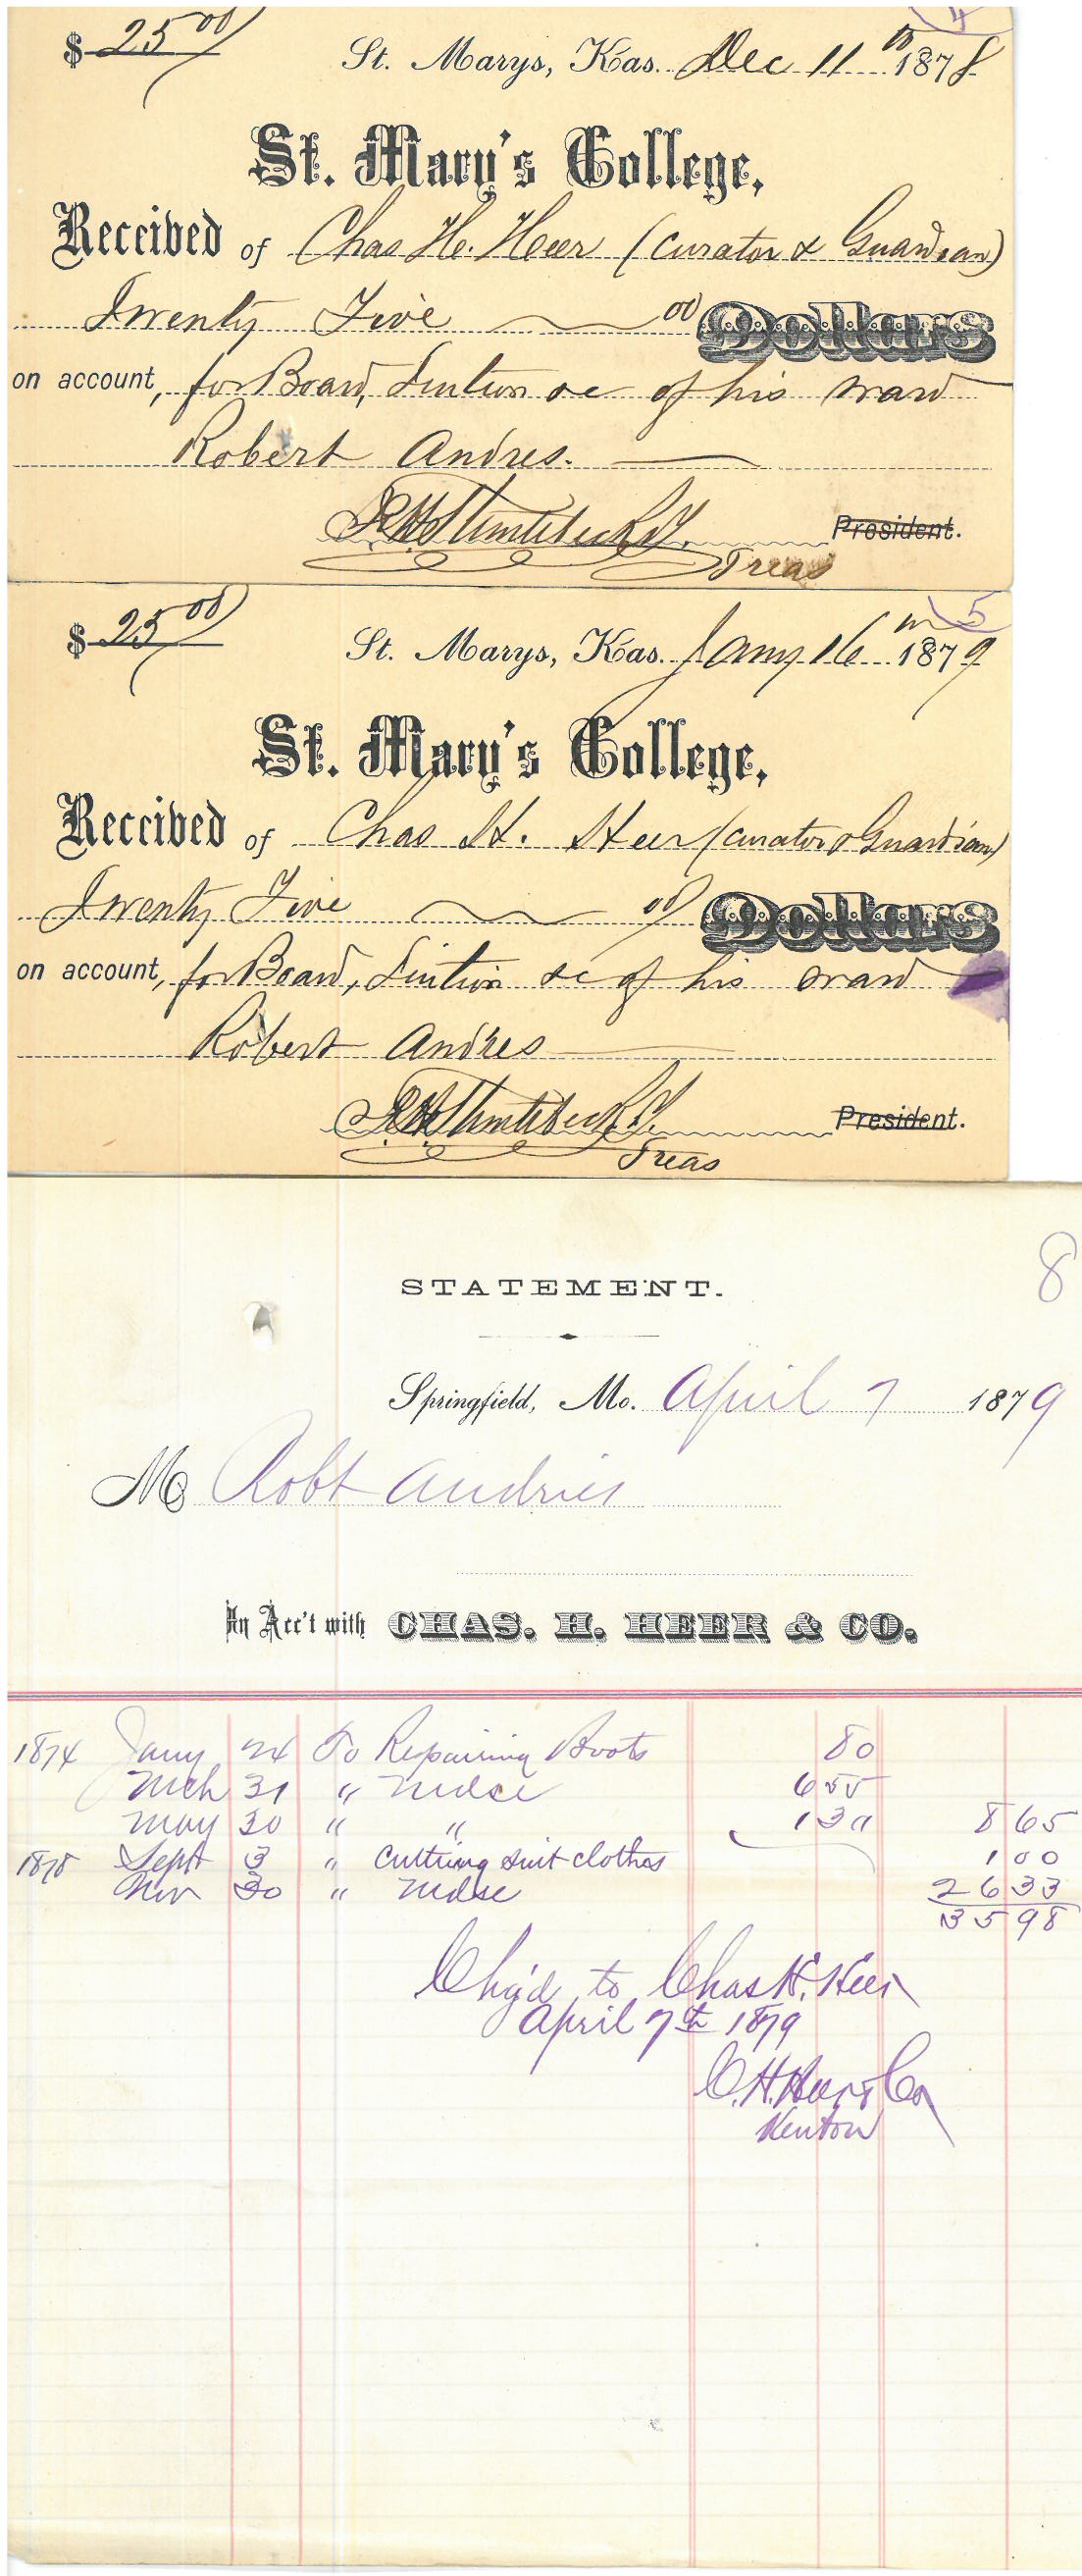 4
$ 25 00/ St. Marys, Kas. Dec 11th 1878
St. Mary's College,
Received of Chas H. Heer (Curator & Guardian)
Twenty Five 00 Dollars
on account, for Board, Tuition &c of his ward
Robert Andres.
President.
Treas
5
$ 25 00/ St. Marys, Kas. Jany 16th 1879
St. Mary's College,
Received of Chas H. Heer (Curator & Guardian)
Twenty Five 00/ Dollars
on account, for Board, Tuition &c of his ward
Robert Andres
President.
Treas
8
STATEMENT.
Springfield, Mo. April 7 1879
M Robt Andries
In Acc't with CHAS. H. HEER & CO.
1874 Jany 24 To Repairing Boots 80
Mch 31 " Mdse 655
May 30 " " 130 865
1878 Sept 3 " Cutting suit clothes 100
Nov 30 " Mdse 2633
3598
Chg'd to Chas H. Heer
April 7th 1879
C.H. Heer & Co
Kenton